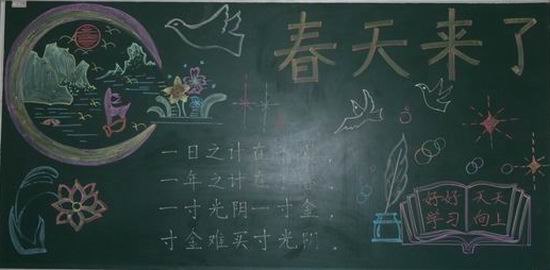 春天来了
一日之计在
一年之计在
一寸光阴一寸金，
寸金难买寸光阴。
好好 天天
学习 向上